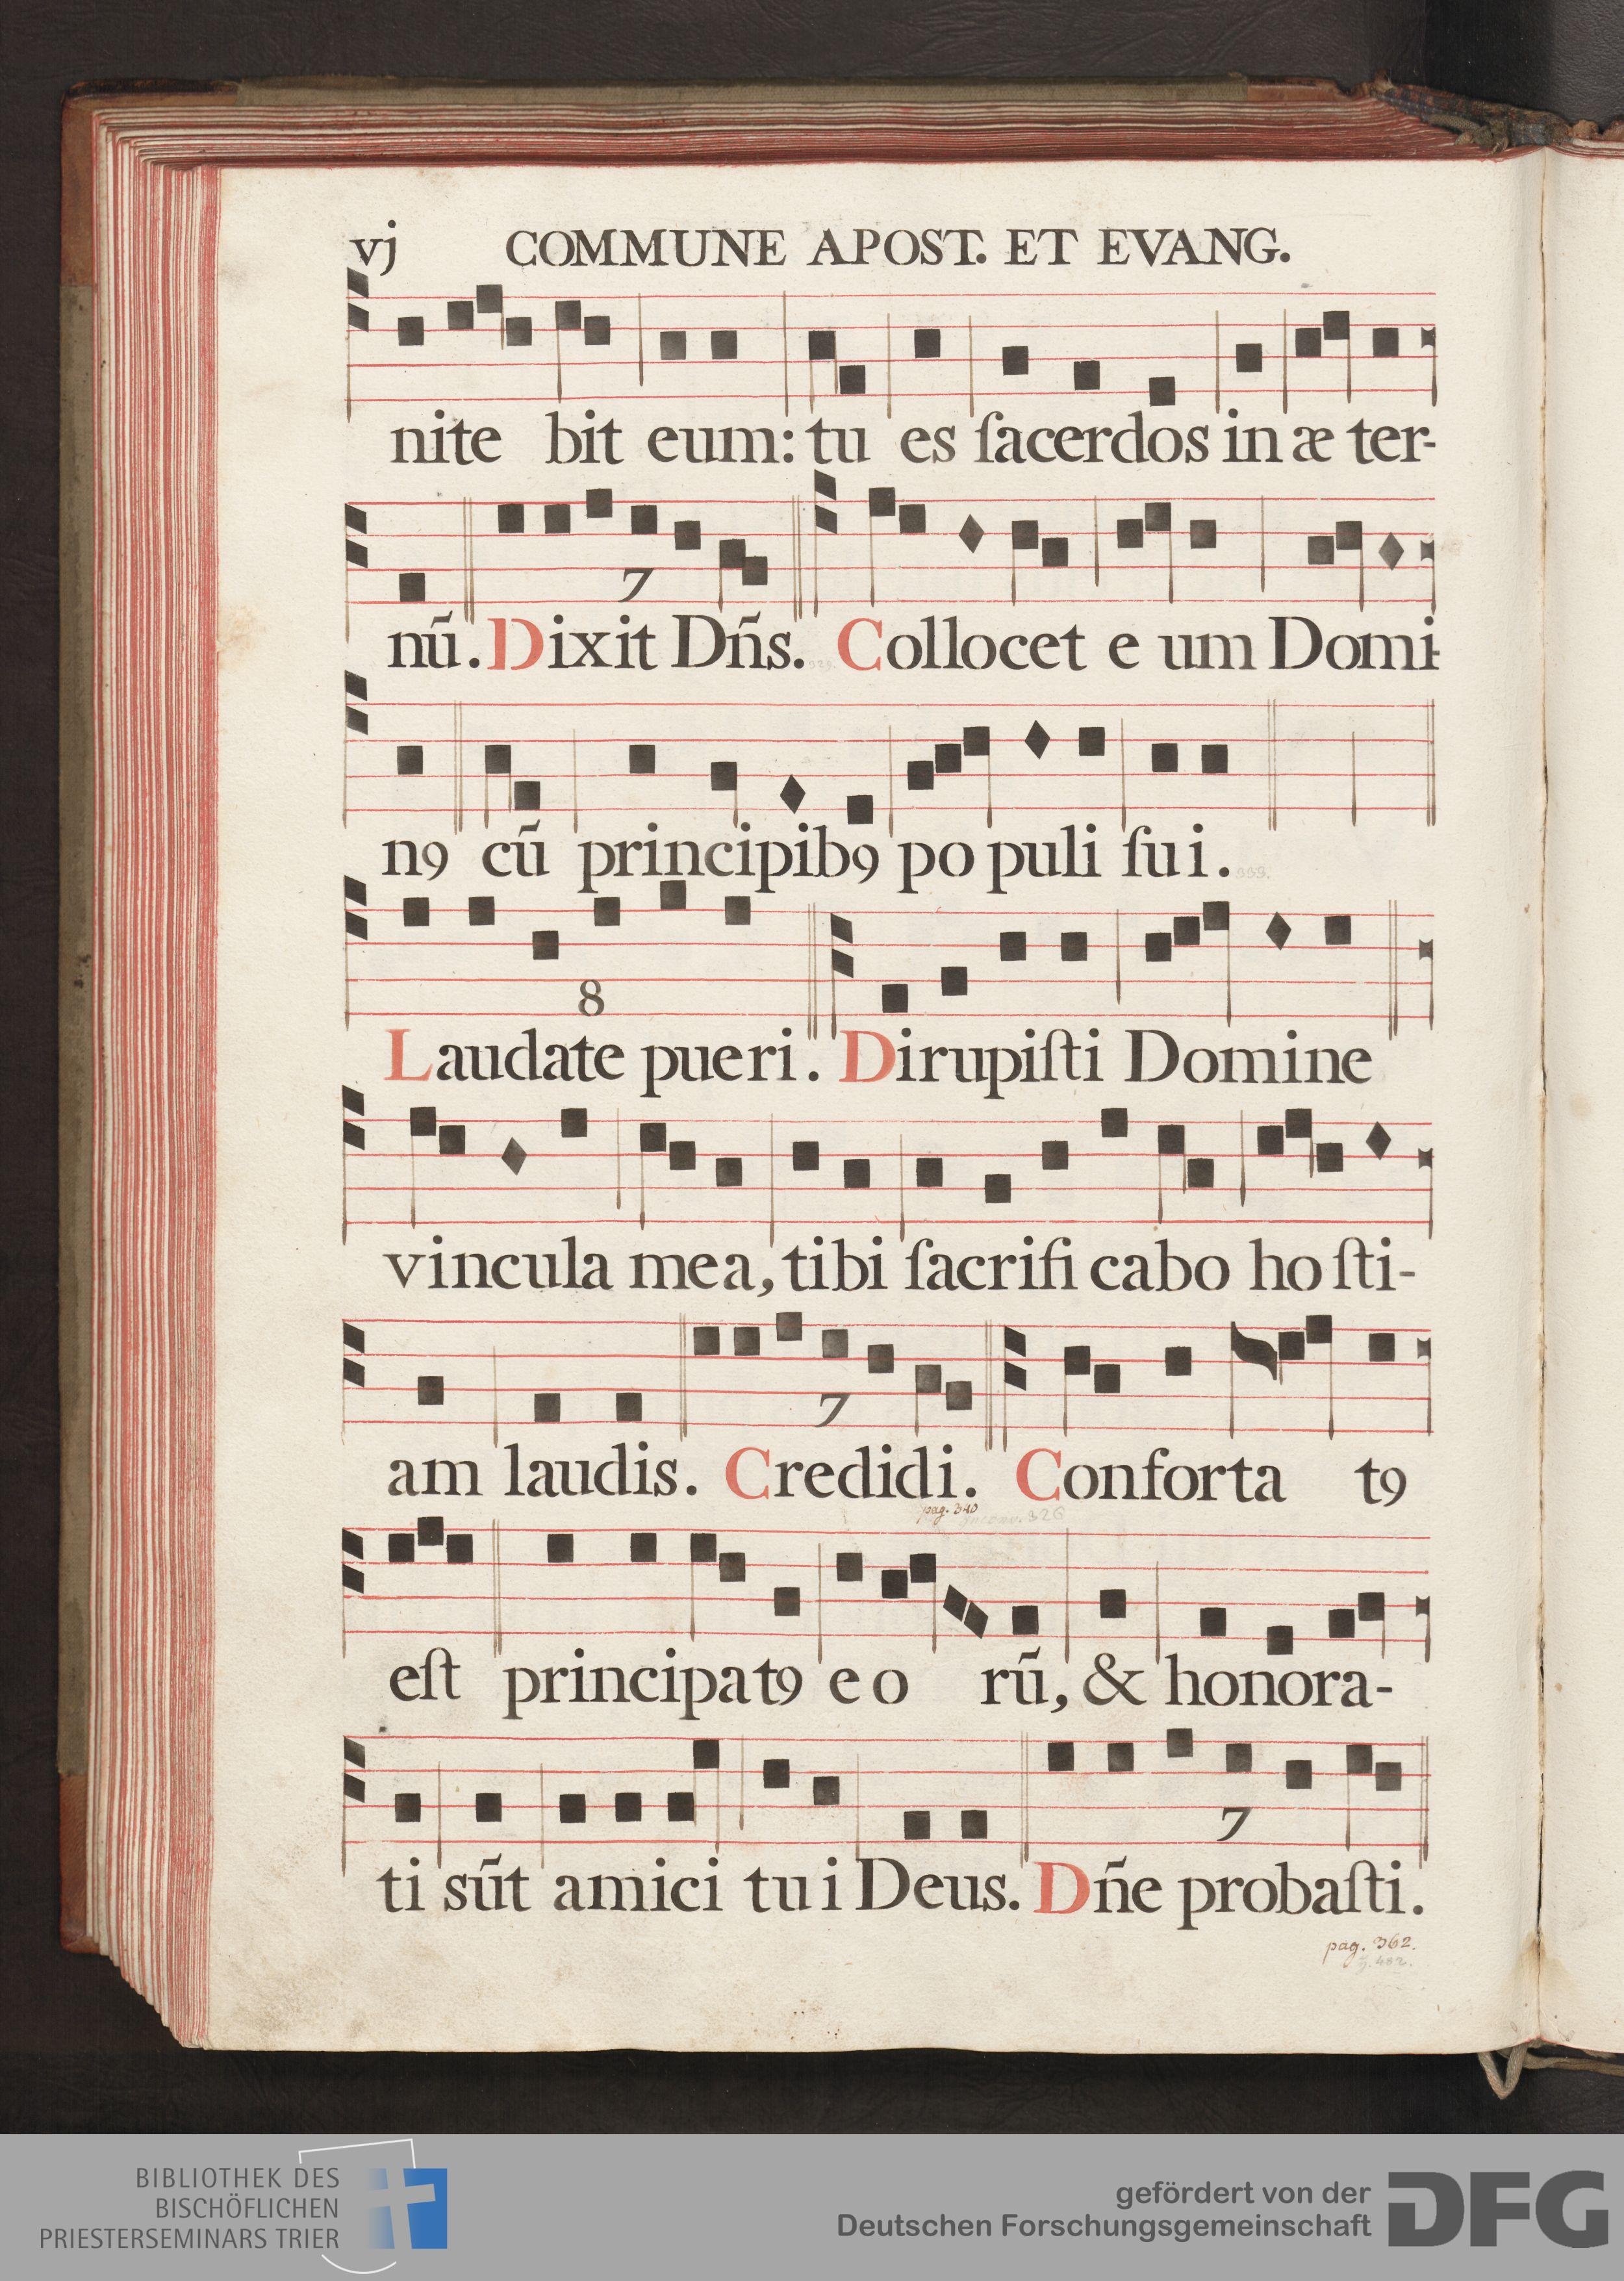 vj COMMUNE APOST. ET EVANG.
nite bit eum: tu es ſacerdos in æ ter-
7
nū. Dixit Dn̄s. Collocet e um Domi-
n9 cū principib9 po puli ſui.
8
Laudate pueri. Dirupiſti Domine
vincula mea, tibi ſacrifi cabo ho ſti-
7
am laudis. Credidi. Conforta t9
pag. 340
eſt principat9 e o rū, & honora-
7
ti sūt amici tu i Deus. Dn̄e probaſti.
pag. 362.
BIBLIOTHEK DES
BISCHÖFLICHEN
PRIESTERSEMINARS TRIER
gefördert von der
Deutschen Forschungsgemeinschaft
DFG